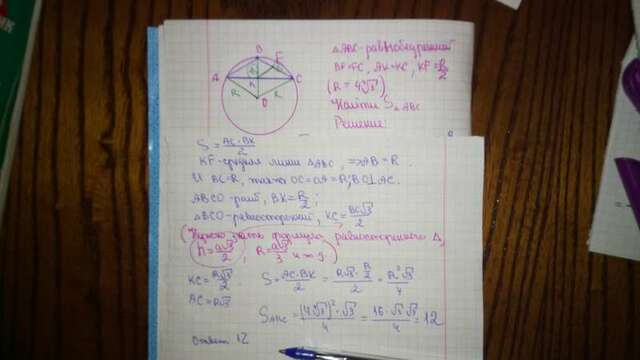 B
F
A
K
C
R
R
O
△ABC-равнобедренный
BF=FC, AK=KC, KF=R/2
(R=4⁴√3)
Найти S△ABC
Решение:
S=AC·BK/2
KF-средняя линия △ABC, =>AB=R
и BC=R, также OC=OA=R; BO⊥AC.
ABCO-ромб, BK=R/2;
△BCO-равносторонний, KC=BC√3/2
(Нужно знать формулы равностороннего △
h=a√3/2; R=a√3/3 и т.д.)
KC=R√3/2 S=AC·BK/2=R√3·R/2/2=R²√3/4
AC=R√3
SABC=(4⁴√3)²·√3/4=16·√3·√3/4=12
Ответ 12